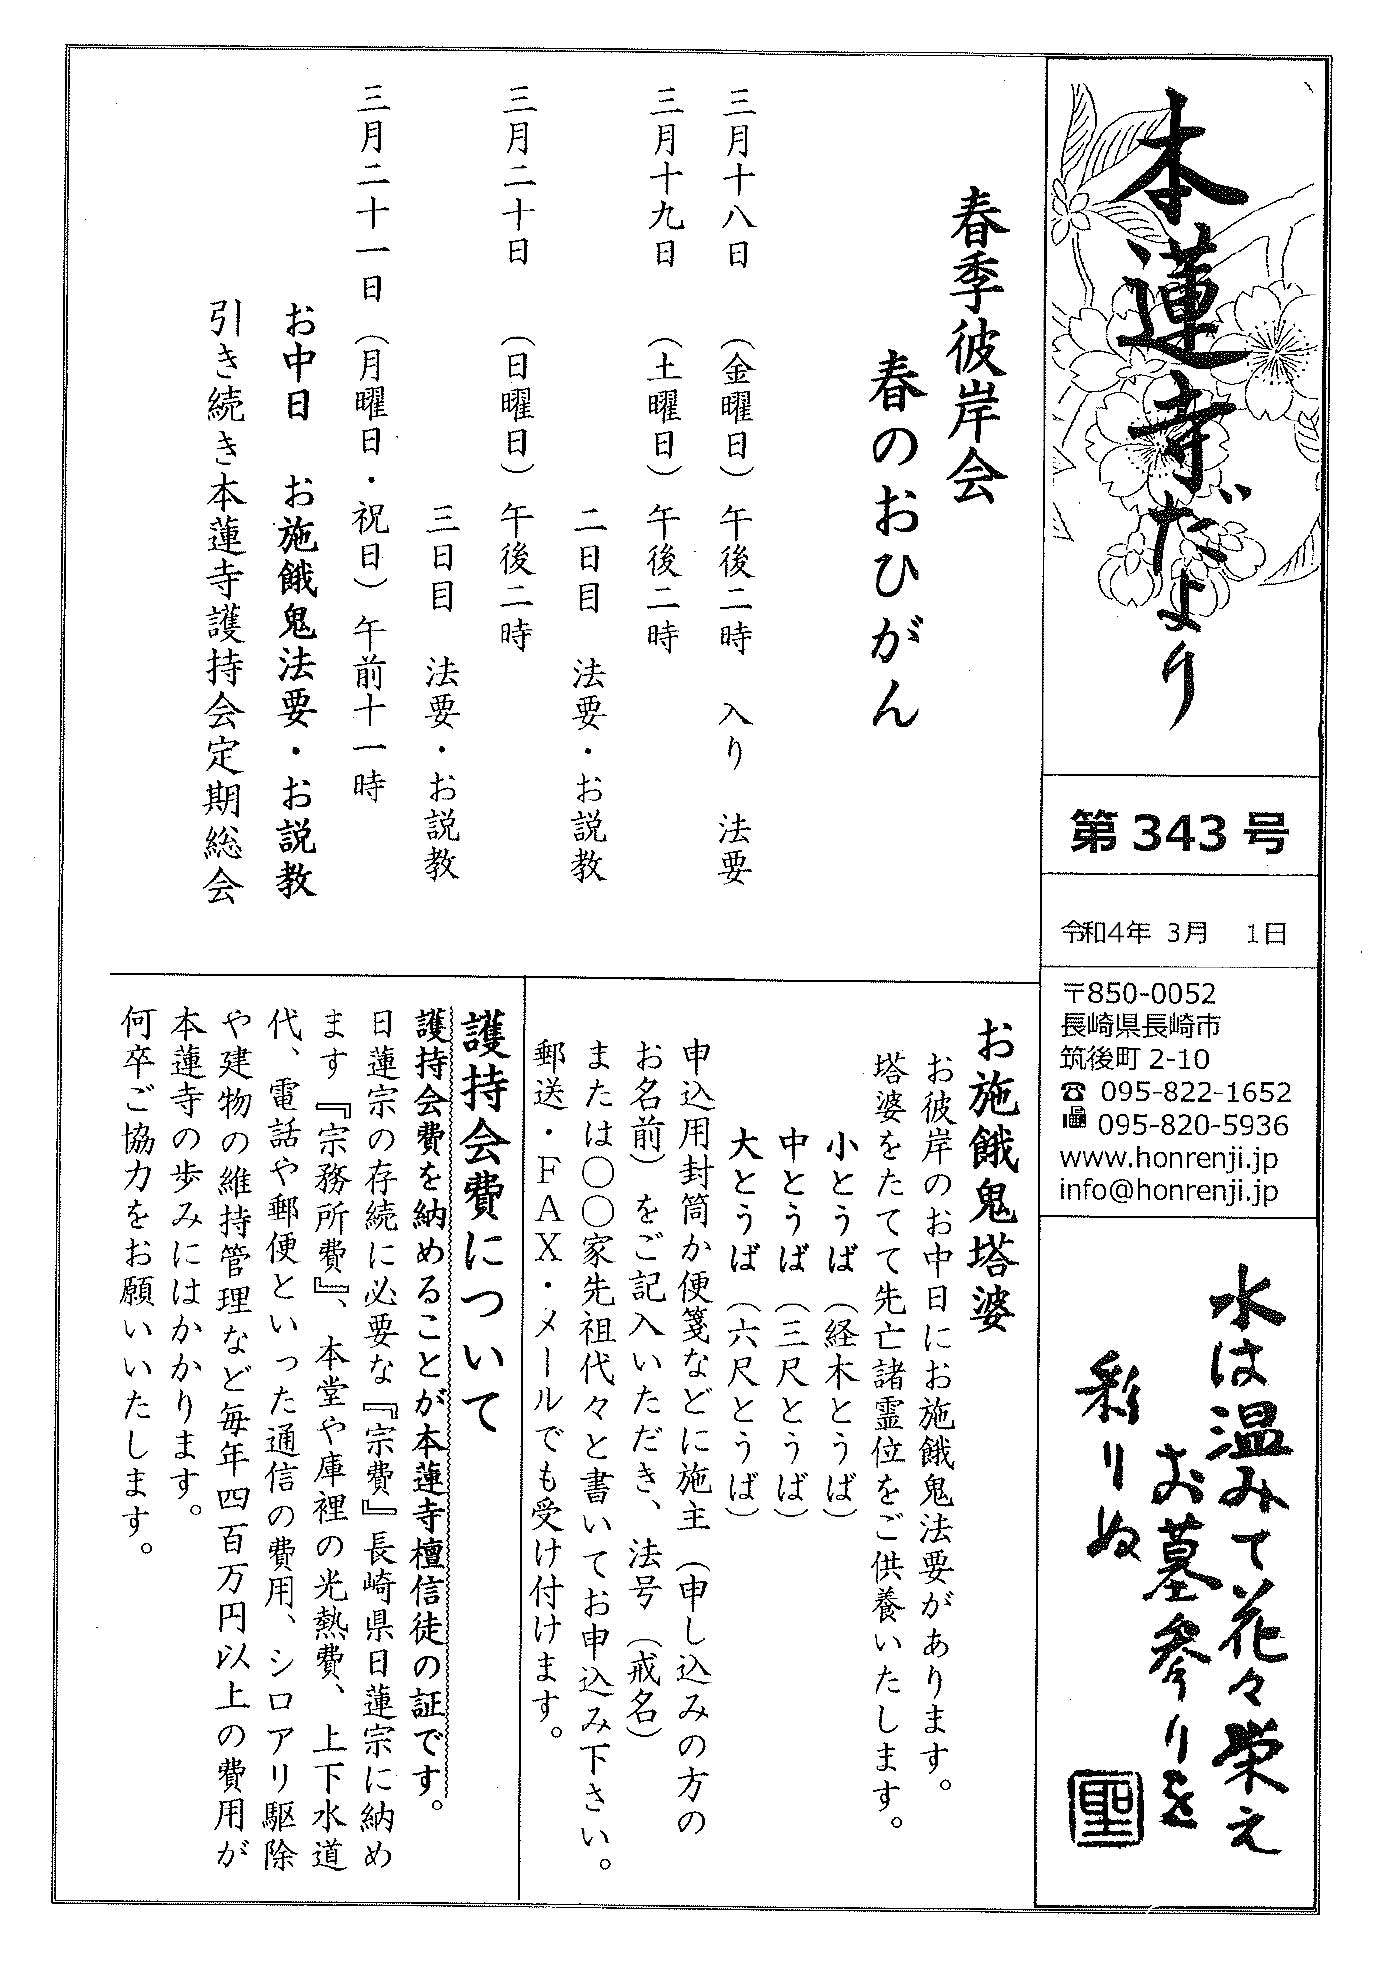 本蓮寺だより
第343号
令和4年 3月 1日
〒850-0052
長崎県長崎市
筑後町 2-10
☎ 095-822-1652
095-820-5936
www.honrenji.jp
info@honrenji.jp
水は温みて花々栄え
お墓参りを
彩りぬ
聖
春季彼岸会
春のおひがん
三月十八日 （金曜日）午後二時 入り 法要
三月十九日 （土曜日）午後二時
二日目 法要・お説教
三月二十日 （日曜日）午後二時
三日目 法要・お説教
三月二十一日（月曜日・祝日）午前十一時
お中日 お施餓鬼法要・お説教
引き続き本蓮寺護持会定期総会
お施餓鬼塔婆
お彼岸のお中日にお施餓鬼法要があります。
塔婆をたてて先亡諸霊位をご供養いたします。
小とうば（経木とうば）
中とうば（三尺とうば）
大とうば（六尺とうば）
申込用封筒か便箋などに施主（申し込みの方の
お名前）をご記入いただき、法号（戒名）
または〇〇家先祖代々と書いてお申込み下さい。
郵送・ＦＡＸ・メールでも受け付けます。
護持会費について
護持会費を納めることが本蓮寺檀信徒の証です。
日蓮宗の存続に必要な『宗費』長崎県日蓮宗に納め
ます『宗務所費』、本堂や庫裡の光熱費、上下水道
代、電話や郵便といった通信の費用、シロアリ駆除
や建物の維持管理など毎年四百万円以上の費用が
本蓮寺の歩みにはかかります。
何卒ご協力をお願いいたします。